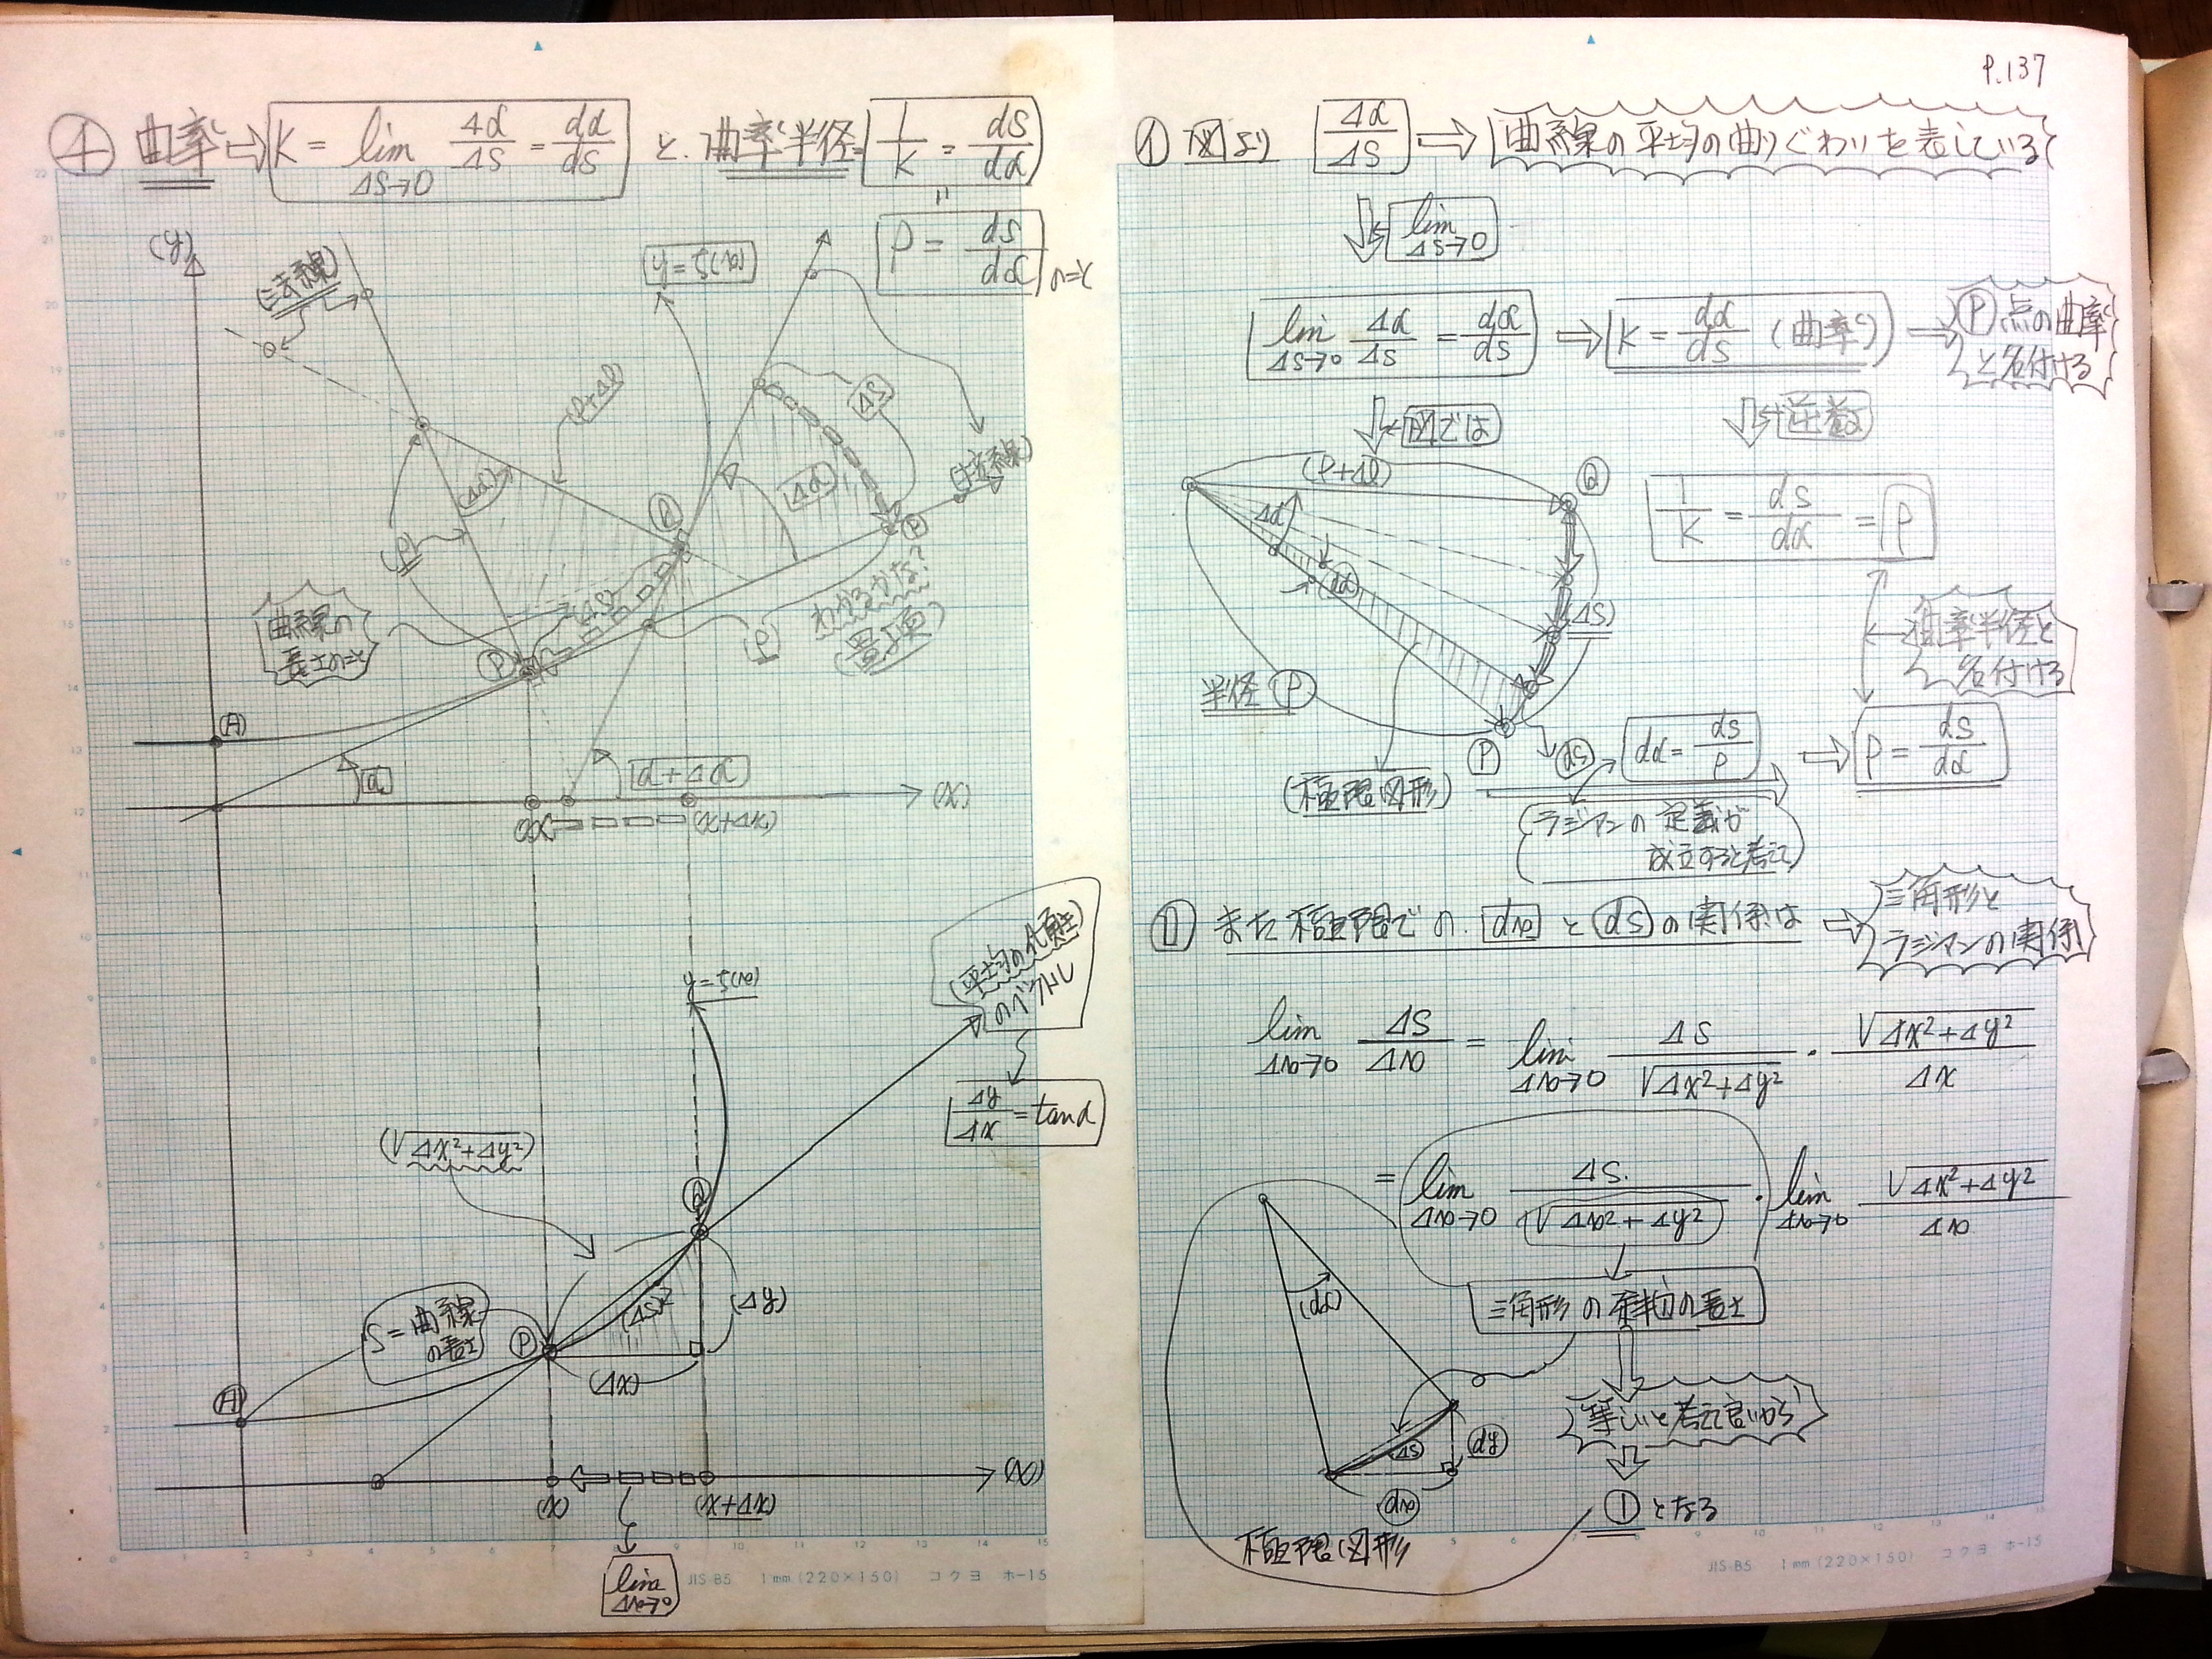 ④ 曲率⇨ K = lim Δs→0 Δα/Δs = dα/ds と. 曲率半径= 1/K = ds/dα
ρ = ds/dα のこと
(y)
(法線)
y=f(x)
(ρ+Δρ)
(Δα)
Δs
Δα
(接線)
(ρ)
Q
P
曲線の
長さのこと
(Δs)
P
ρ
わかるかな?
(置項)
(A)
α
α+Δα
(x)
(x)
(x+Δx)
(平均の傾き)
のベクトル
y=f(x)
Δy/Δx = tanα
(√Δx²+Δy²)
Q
(Δs)
(Δy)
S=曲線
の長さ
P
(Δx)
A
(x)
(x+Δx)
(x)
lim Δx→0
JIS-B5 1mm(220×150) コクヨ ホ-15
P.137
① 図より Δα/Δs ⇨ 曲線の平均の曲りぐわいを表している
lim Δs→0
lim Δs→0 Δα/Δs = dα/ds ⇨ K = dα/ds (曲率) → P点の曲率
と名付ける
図では
逆数
(ρ+Δρ)
Q
1/K = ds/dα = ρ
Δα
(dα)
(Δs)
曲率半径と
名付ける
半径 ρ
P
ds
dα = ds/ρ ⇨ ρ = ds/dα
(極限図形)
(ラジアンの定義が
成立すると考えて)
⑪ また極限での. dx と ds の関係は ⇨ 三角形と
ラジアンの関係
lim Δx→0 Δs/Δx = lim Δx→0 Δs/√Δx²+Δy² ・ √Δx²+Δy²/Δx
= lim Δx→0 Δs./√Δx²+Δy² ・ lim Δx→0 √Δx²+Δy²/Δx
(dα)
三角形の斜辺の長さ
等しいと考えて良いから
Δs
dy
dx
① となる
極限図形
JIS-B5 1mm(220×150) コクヨ ホ-15